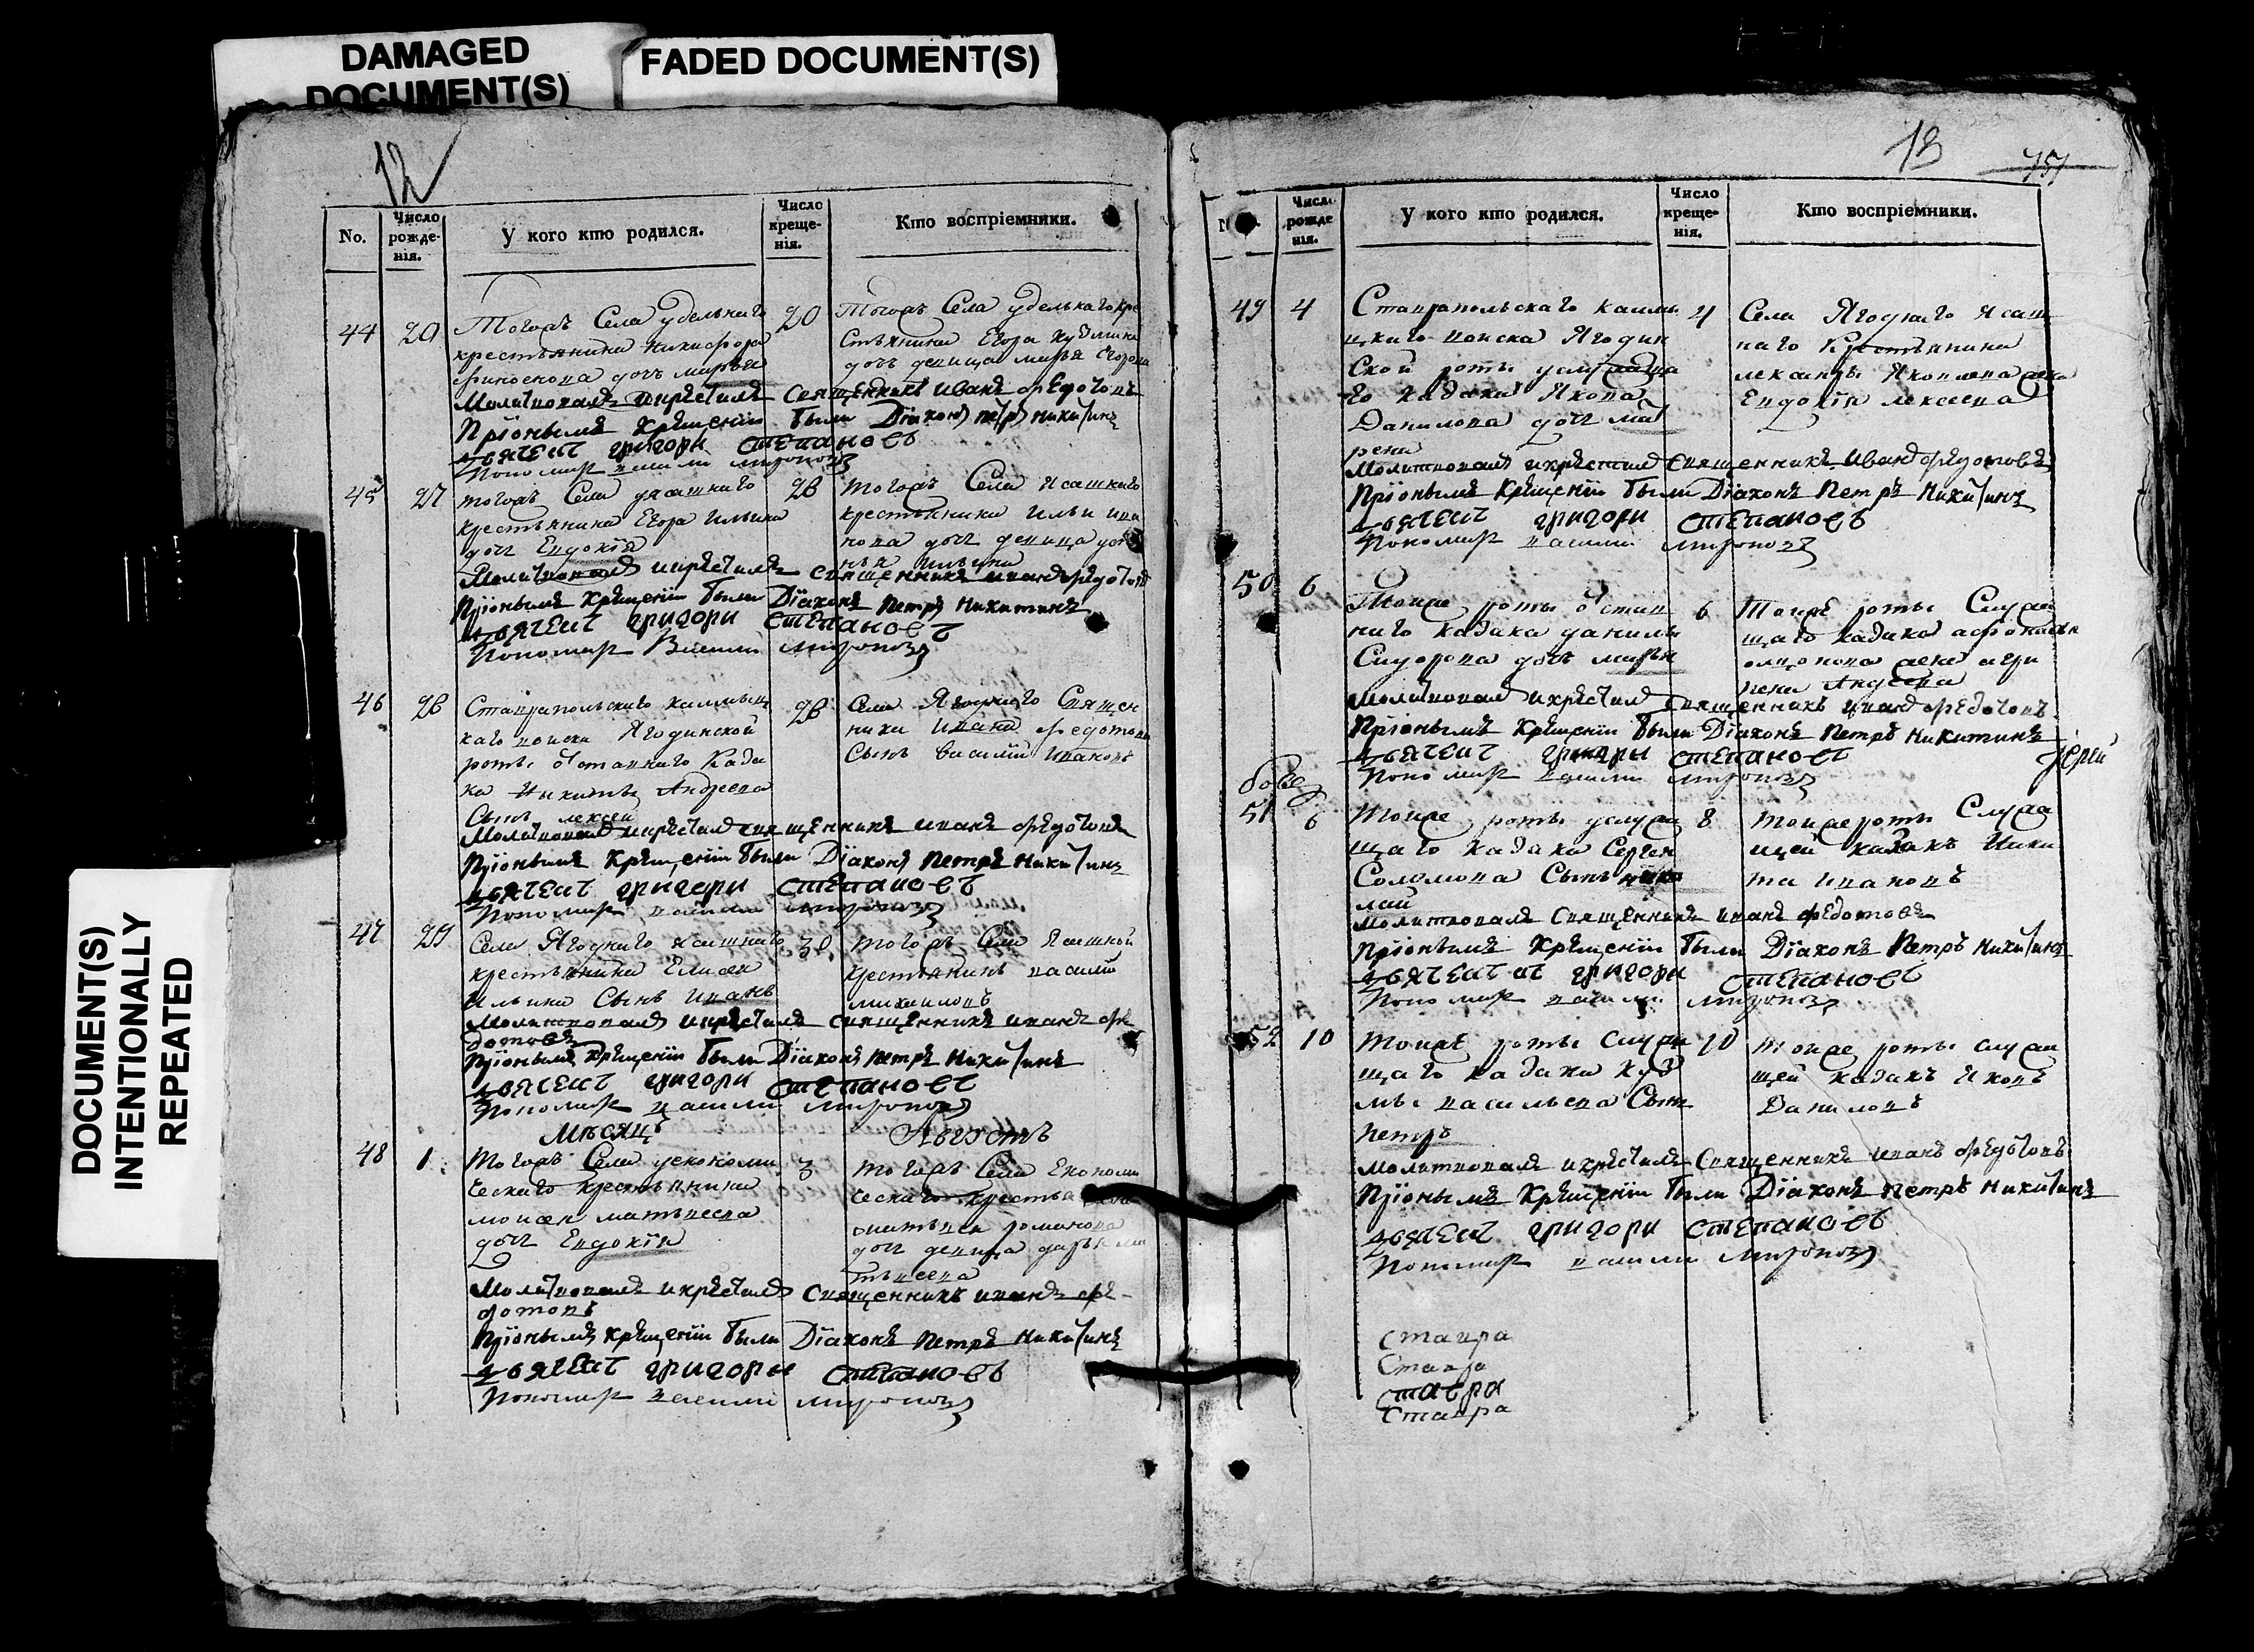 DAMAGED
DOCUMENT(S)
FADED DOCUMENT(S)
DOCUMENT(S)
INTENTIONALLY
REPEATED
12
No.
Число
рожде-
нія.
У кого кто родился.
Число
креще-
нія.
Кто воспріемники.
44
20
Тогожъ Села удельнаго
крестьянина Никифора
дочь марья
20
Тогожъ Села удельнаго кре
стьянина Егора
дочь девица марья Егорова
Молитвовалъ икрестилъ Священникъ Иванъ Федотовъ
Прионымъ Крещении были Дїаконъ петръ никитинъ
дьячекъ григори степановъ
Пономарь васили миронов
45
27
тогожъ Села ясашнаго
крестьянина Егора Ильина
дочь Евдокїя
28
тогожъ Села Ясашнаго
крестьянина Ильи ива
нова дочь девица
ильина
Молитвовалъ икрестилъ священникъ иванъ федотовъ
Прионымъ Крещении были Дїаконъ Петръ Никитинъ
дьячекъ григори степановъ
Пономарь Васили миронов
46
28
Ставропольскаго калмыц
каго войска Ягодинской
роты отставнаго Каза
ка Никиты Андреева
Сынъ лексей
28
Села Ягоднаго Священ
ника Ивана федотова
Сынъ василий Ивановъ
Молитвовалъ икрестилъ священникъ иванъ федотовъ
Прионымъ Крещении были Дїаконъ Петръ Никитинъ
дьячекъ григори степановъ
Пономарь васили миронов
47
29
Села Ягоднаго ясашнаго
крестьянина Елисея
Ильина Сынъ Иванъ
30
тогожъ Села Ясашной
крестьянинъ василий
михаиловъ
Молитвовалъ икрестилъ священникъ иванъ фе
дотовъ
Прионымъ Крещении были Дїаконъ Петръ Никитинъ
дьячекъ григори степановъ
Пономарь васили миронов
Месяцъ Августъ
48
1
Тогожъ Села уекономи
ческаго крестьянина
моисея матвеева
дочь Евдокїя
3
тогожъ Села Економи
ческаго крестья
матвея романова
дочь девица дарья ма
твеева
Молитвовалъ икрестилъ Священникъ иванъ фе-
дотовъ
Прионымъ Крещении были Дїаконъ Петръ Никитинъ
дьячекъ григори степановъ
Пономарь васили миронов
13
No.
Число
рожде
нія.
У кого кто родился.
Число
креще-
нія.
Кто воспріемники.
49
4
Ставропольскаго калмы
цкаго войска Ягодин
ской роты услужаща
го казака Якова
Данилова дочь ма
рена
4
Села Ягоднаго Ясаш
наго Крестьянина
лександры Яковлева жена
Евдокїя лексеева
Молитвовалъ икрестилъ Священникъ Иванъ федотовъ
Прионымъ Крещении были Дїаконъ Петръ Никитинъ
дьячекъ григори степановъ
Пономарь васили миронов
50
6
Тойже роты отстав
наго казака данилы
Сидорова дочь марья
6
Тойже роты Служа
щаго казака афонасья
жена агри
пена Андреева
Молитвовалъ икрестилъ Священникъ Иванъ федотовъ
Прионымъ Крещении были Дїаконъ Петръ Никитинъ
дьячекъ григори степановъ
Пономарь васили миронов
51
6
Тойже роты услужа
щаго казака Сергея
Соломова Сынъ нико
лай
8
тойже роты Служа
щей казакъ Ники
та Ивановъ
Молитвовалъ Священникъ иванъ федотовъ
Прионымъ Крещении были Дїаконъ Петръ Никитинъ
григори степановъ
Пономарь васили миронов
52
10
Тойже роты Служа
щаго казака Куз
мы васильева Сынъ
Петръ
10
Тойже роты служа
щей казакъ Яковъ
Даниловъ
Молитвовалъ икрестилъ Священникъ иванъ федотовъ
Прионымъ Крещении были Дїаконъ Петръ Никитинъ
дьячекъ григори степановъ
Пономарь васили миронов
Ставра
Ставра
Ставра
Ставра